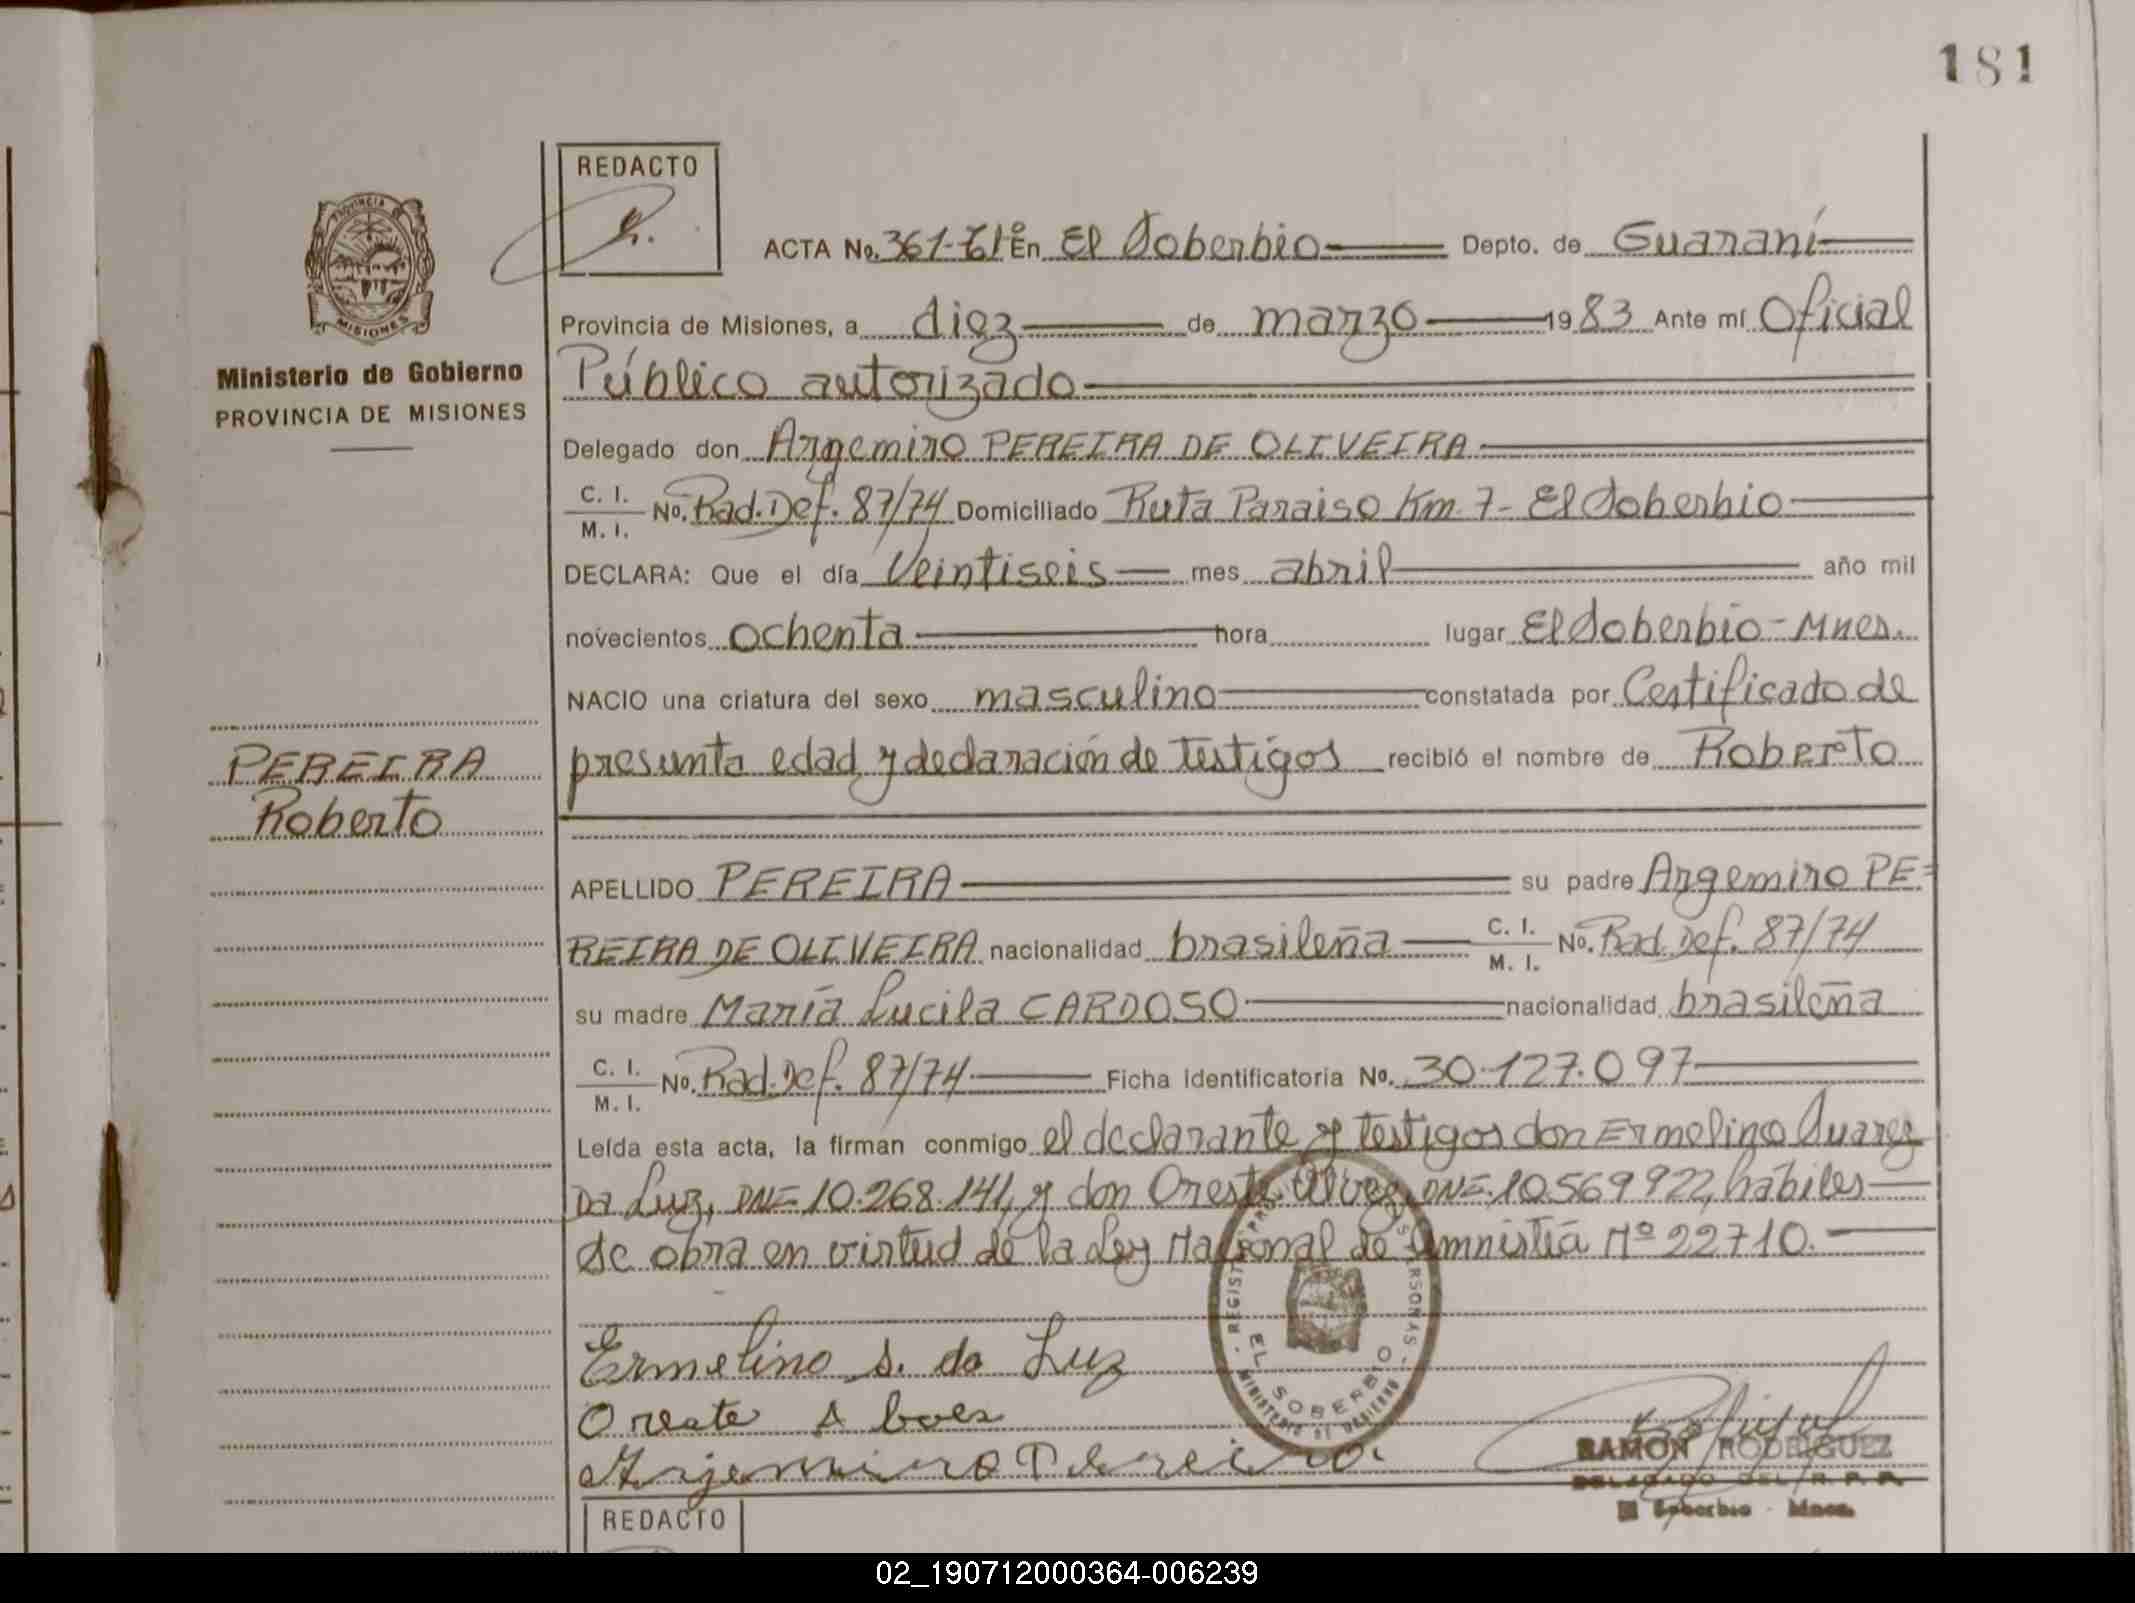 181
REDACTO
PROVINCIA
MISIONES
Ministerio de Gobierno
PROVINCIA DE MISIONES
ACTA No. 361-T1º En El Soberbio Depto. de Guaraní
Provincia de Misiones, a diez de marzo 1983 Ante mí Oficial
Público autorizado
Delegado don Argemiro PEREIRA DE OLIVEIRA
C. I.
M. I. No. Rad. Def. 87/74 Domiciliado Ruta Paraiso Km. 7- El Soberbio
DECLARA: Que el día Veintiseis mes abril año mil
novecientos ochenta hora lugar El Soberbio - Mnes.
NACIO una criatura del sexo masculino constatada por Certificado de
presunta edad y declaración de testigos recibió el nombre de Roberto
PEREIRA
Roberto
APELLIDO PEREIRA su padre Argemiro PE=
REIRA DE OLIVEIRA nacionalidad brasileña C. I.
M. I. No. Rad. Def. 87/74
su madre María Lucila CARDOSO nacionalidad brasileña
C. I.
M. I. No. Rad. Def. 87/74 Ficha identificatoria No. 30.127.097
Leída esta acta, la firman conmigo el declarante y testigos don Ermelino Suarez
Da Luz, DNI 10.268.141, y don Oreste DNI 10.569922, hábiles
de obra en virtud de la Ley Nacional de Amnistía Nº 22710.
Ermelino S. da Luz
Oreste
Argemiro Pereira.
EL SOBERBIO
MINISTERIO DE GOBIERNO
RAMON RODRIGUEZ
DELEGADO DEL R. P. P.
El Soberbio - Mnes.
REDACTO
02_190712000364-006239